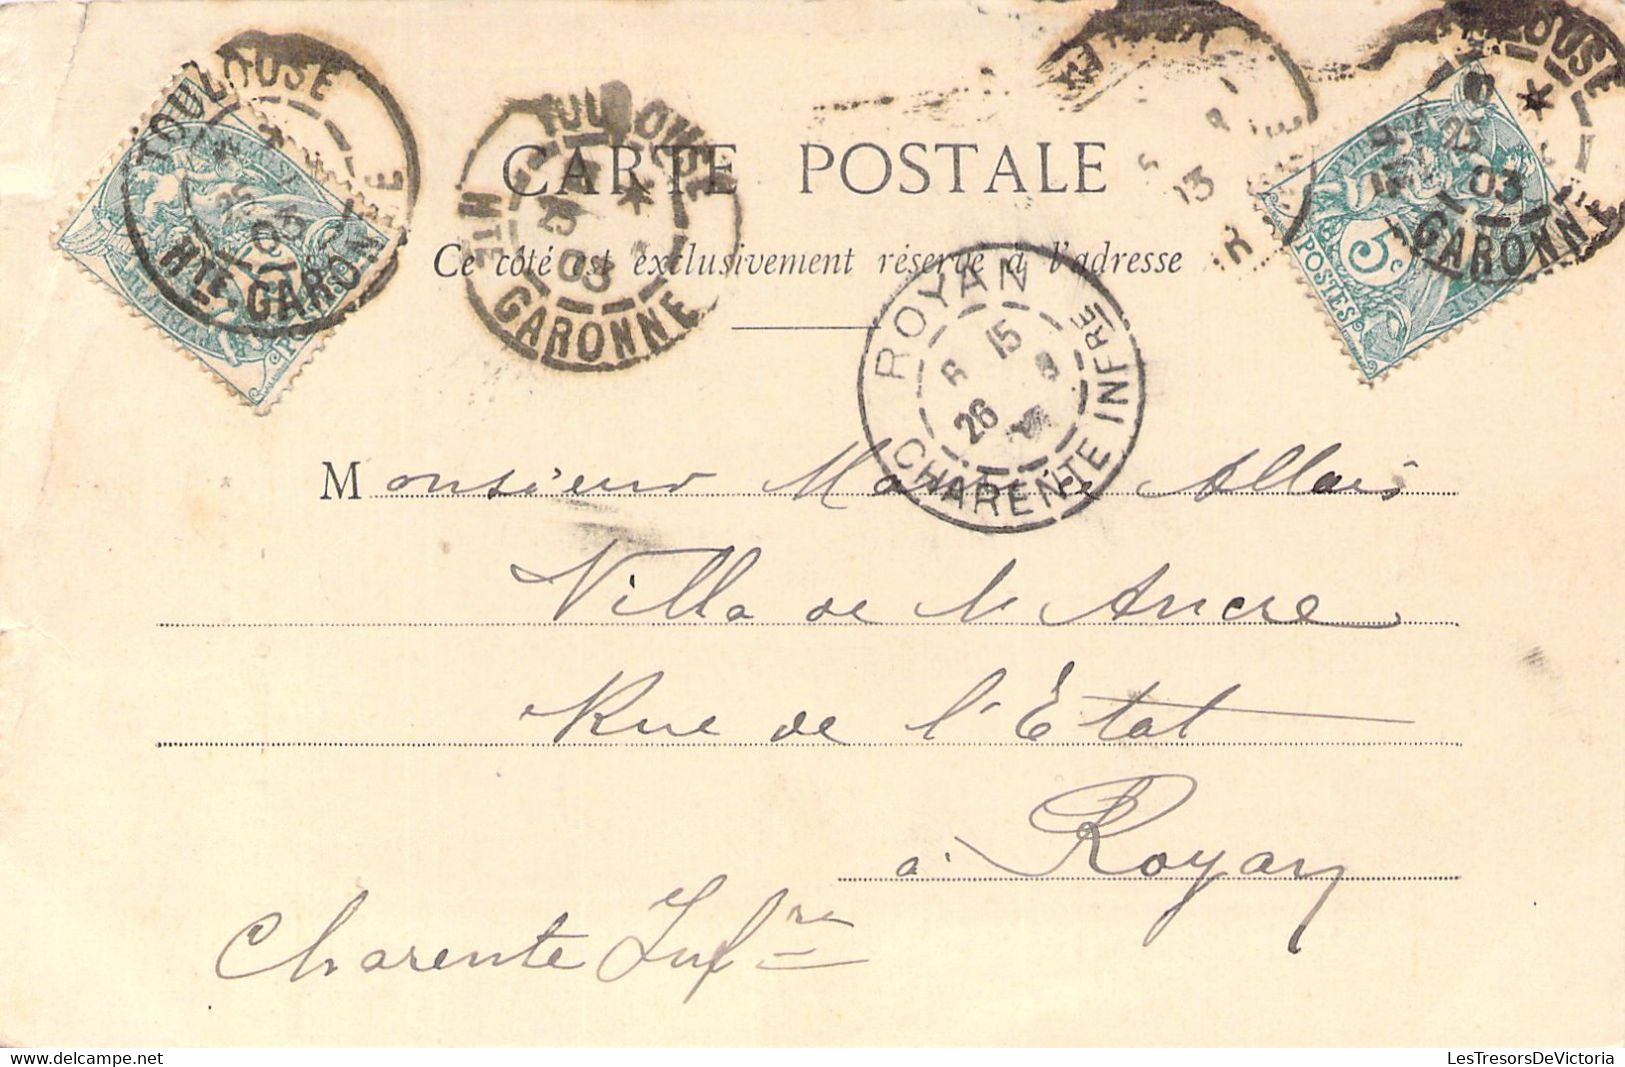 TOULOUSE
Hte GARONNE
03
POSTES
TOULOUSE
HTE GARONNE
03
13
TOULOUSE
03
GARONNE
5c
POSTES
CARTE POSTALE
Ce côté est exclusivement réservé à l'adresse
ROYAN
15
26
CHARENTE INFRE
Monsieur Maurice Allais
Villa de l'Ancre
Rue de l'État
à Royan
Charente Infre
LesTresorsDeVictoria